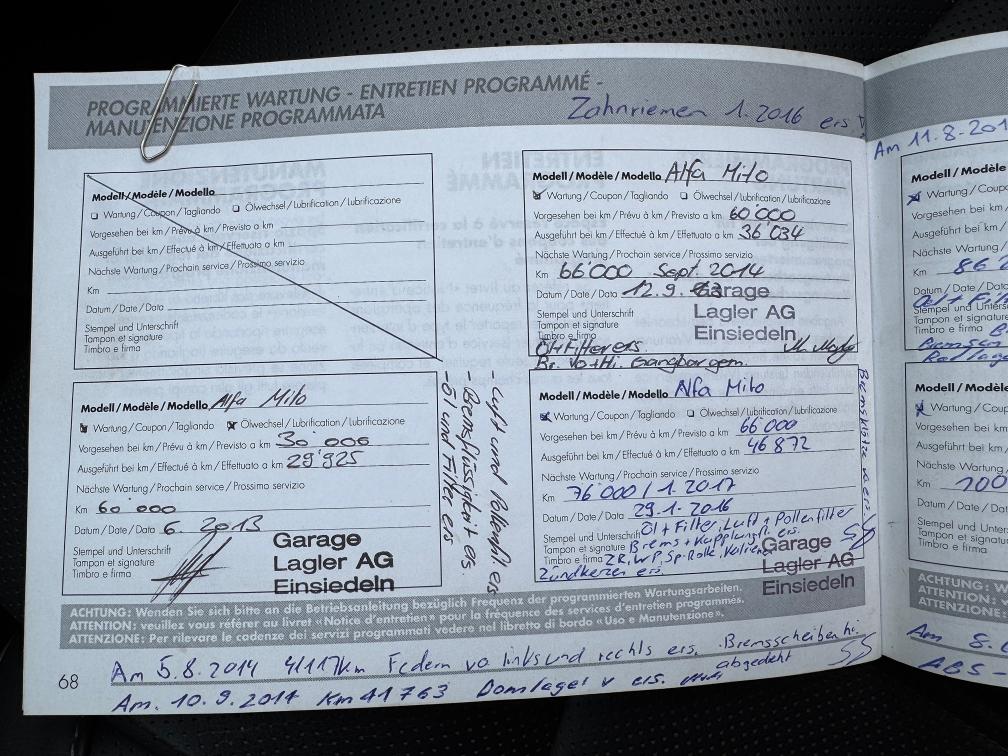 PROGRAMMIERTE WARTUNG - ENTRETIEN PROGRAMMÉ -
MANUTENZIONE PROGRAMMATA
Zahnriemen 1.2016 ers
Modell/Modèle/Modello
Wartung/Coupon/Tagliando Ölwechsel/Lubrification/Lubrificazione
Vorgesehen bei km/Prévu à km/Previsto a km
Ausgeführt bei km/Effectué à km/Effettuato a km
Nächste Wartung/Prochain service/Prossimo servizio
Km
Datum/Date/Data
Stempel und Unterschrift
Tampon et signature
Timbro e firma
Modell/Modèle/Modello Alfa Mito
Wartung/Coupon/Tagliando Ölwechsel/Lubrification/Lubrificazione
Vorgesehen bei km/Prévu à km/Previsto a km 30'000
Ausgeführt bei km/Effectué à km/Effettuato a km 29'925
Nächste Wartung/Prochain service/Prossimo servizio
Km 60'000
Datum/Date/Data 6. 2013
Stempel und Unterschrift
Tampon et signature
Timbro e firma
Garage
Lagler AG
Einsiedeln
- Luft und Pollenfil. ers
- Bremsflüssigkeit ers.
- Öl und Filter ers
Modell/Modèle/Modello Alfa Mito
Wartung/Coupon/Tagliando Ölwechsel/Lubrification/Lubrificazione
Vorgesehen bei km/Prévu à km/Previsto a km 60'000
Ausgeführt bei km/Effectué à km/Effettuato a km 36'034
Nächste Wartung/Prochain service/Prossimo servizio
Km 66'000 Sept. 2014
Datum/Date/Data 12.9.
Stempel und Unterschrift
Tampon et signature
Timbro e firma
Garage
Lagler AG
Einsiedeln
Öl+Filter ers
Br. Vo+Hi. Gangbar gem.
Modell/Modèle/Modello Alfa Mito
Wartung/Coupon/Tagliando Ölwechsel/Lubrification/Lubrificazione
Vorgesehen bei km/Prévu à km/Previsto a km 66'000
Ausgeführt bei km/Effectué à km/Effettuato a km 46'872
Nächste Wartung/Prochain service/Prossimo servizio
Km 76'000 / 1.2017
Datum/Date/Data 29.1.2016
Stempel und Unterschrift Öl + Filter, Luft + Pollenfilter
Tampon et signature Brems + Kupplungsfl. ers.
Timbro e firma ZR, WP, Sp.Rolle,
Zündkerzen ers.
Garage
Lagler AG
Einsiedeln
Bremsklötze vo ers
ACHTUNG: Wenden Sie sich bitte an die Betriebsanleitung bezüglich Frequenz der programmierten Wartungsarbeiten.
ATTENTION: veuillez vous référer au livret «Notice d'entretien» pour la fréquence des services d'entretien programmés.
ATTENZIONE: Per rilevare le cadenze dei servizi programmati vedere nel libretto di bordo «Uso e Manutenzione».
Am 5.8.2014 41117km Federn vo links und rechts ers. Bremsscheiben hi.
abgedeht
Am. 10.9.2014 Km 41763 Domlager v ers.
68
Am 11.8.201
Modell/Modè
Wartung/Co
Vorgesehen bei km
Ausgeführt bei km/
Nächste Wartung/
Km 86'2
Datum/Date/Data
Öl + Fil
Stempel und Unters
Tampon et signature
Timbro e firma
Modell/Modèl
Wartung/Coup
Vorgesehen bei km/P
Ausgeführt bei km/E
Nächste Wartung/Pr
Km 100
Datum/Date/Data
Stempel und Untersch
Tampon et signature
Timbro e firma
ACHTUNG: Wend
ATTENTION: veui
ATTENZIONE: Per
Am
ABS -